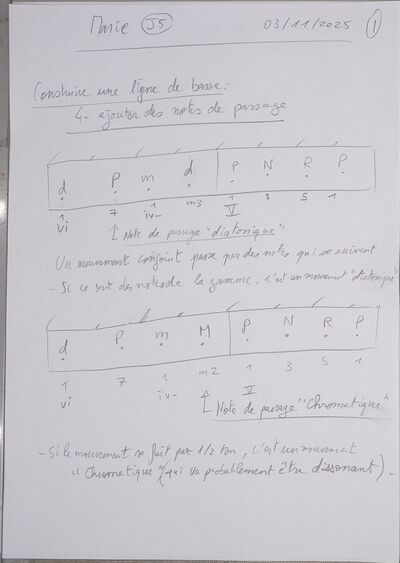 Marie J5 03/11/2025 1
Construire une ligne de basse :
4- ajouter des notes de passage
d P m d P N R P
1 7 1 m3 1 3 5 1
vi iv- V
Note de passage "diatonique"
. Un mouvement conjoint passe par des notes qui se suivent
- Si ce sont des notes de la gamme, c'est un mouvement "diatonique"
d P m M P N R P
1 7 1 m2 1 3 5 1
vi iv- V
Note de passage "Chromatique"
- Si le mouvement se fait par 1/2 ton, c'est un mouvement
"Chromatique" (qui va probablement être dissonant) -